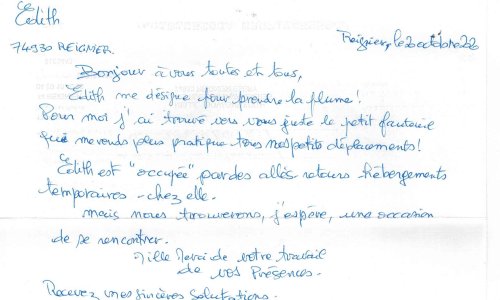 Edith
74930 REIGNIER
Reignier, le 20 octobre 22
Bonjour à vous toutes et tous,
Edith me désigne pour prendre la plume!
Pour moi j'ai trouvé vers vous juste le petit fauteuil
qui me rends plus pratique tous mes petits déplacements!
Edith est "occupée" par des allés retours hébergements
temporaires - chez elle.
mais nous trouverons, j'espère, une occasion
de se rencontrer.
Mille Merci de votre travail
de vos Présences.
Recevez mes sincères salutations.